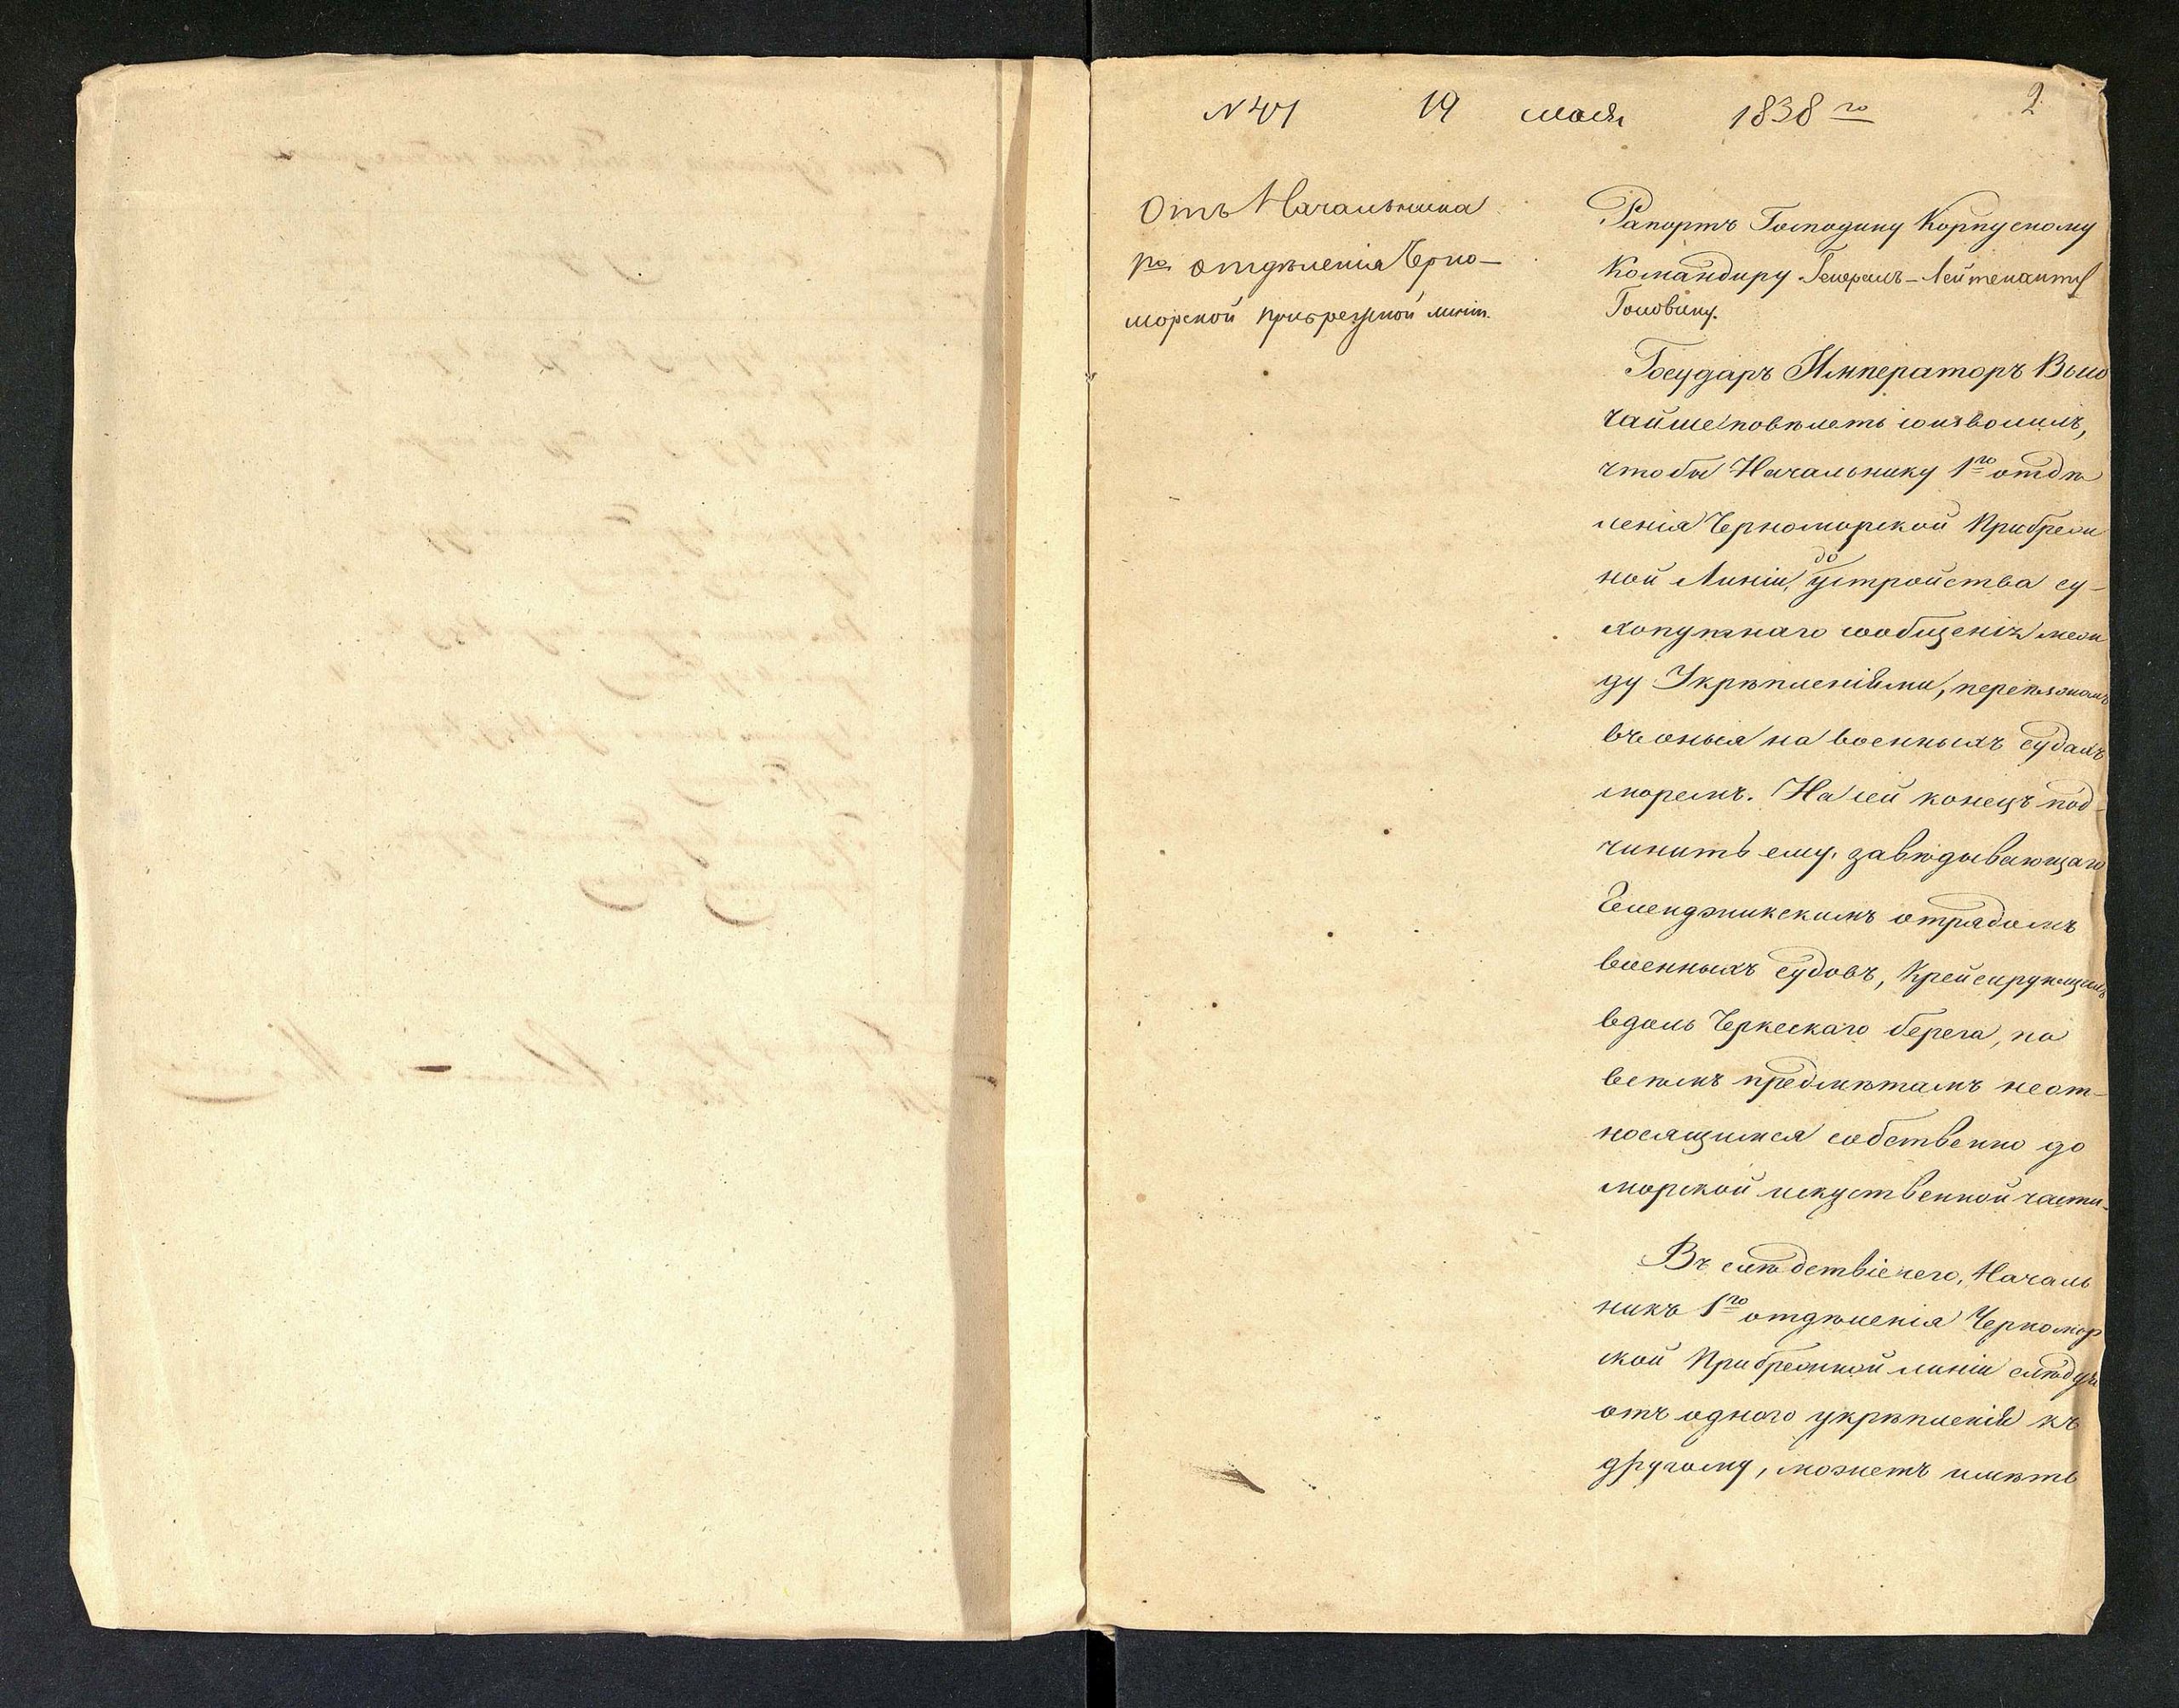 N 41 19 мая 1838 го 2
Отъ Начальника
1го отдѣленія Черно-
морской прибрежной линіи.
Рапортъ Господину Корпусному
Командиру Генералъ-Лейтенанту
Головину.
Государь Императоръ Высо
чайше повѣлеть соизволилъ,
чтобы Начальнику 1го отдѣ
ленія Черноморской Прибреж
ной Линіи, до устройства су-
хопутнаго сообщенія меж
ду Укрѣпленіями,
въ оныя на военныхъ судахъ
моремъ. На сей конецъ под-
чинить ему, завѣдывающаго
Геленджикскимъ отрядомъ
военныхъ судовъ, Крейсирующимъ
вдоль Черкескаго берега, по
всѣмъ предмѣтамъ неот-
носящимся собственно до
морской искуственной части.
Въ слѣдствіе чего, Началь
никъ 1го отдѣленія Черномор
ской Прибрежной линіи слѣдуя
отъ одного укрѣпленія къ
другому, можетъ имѣть